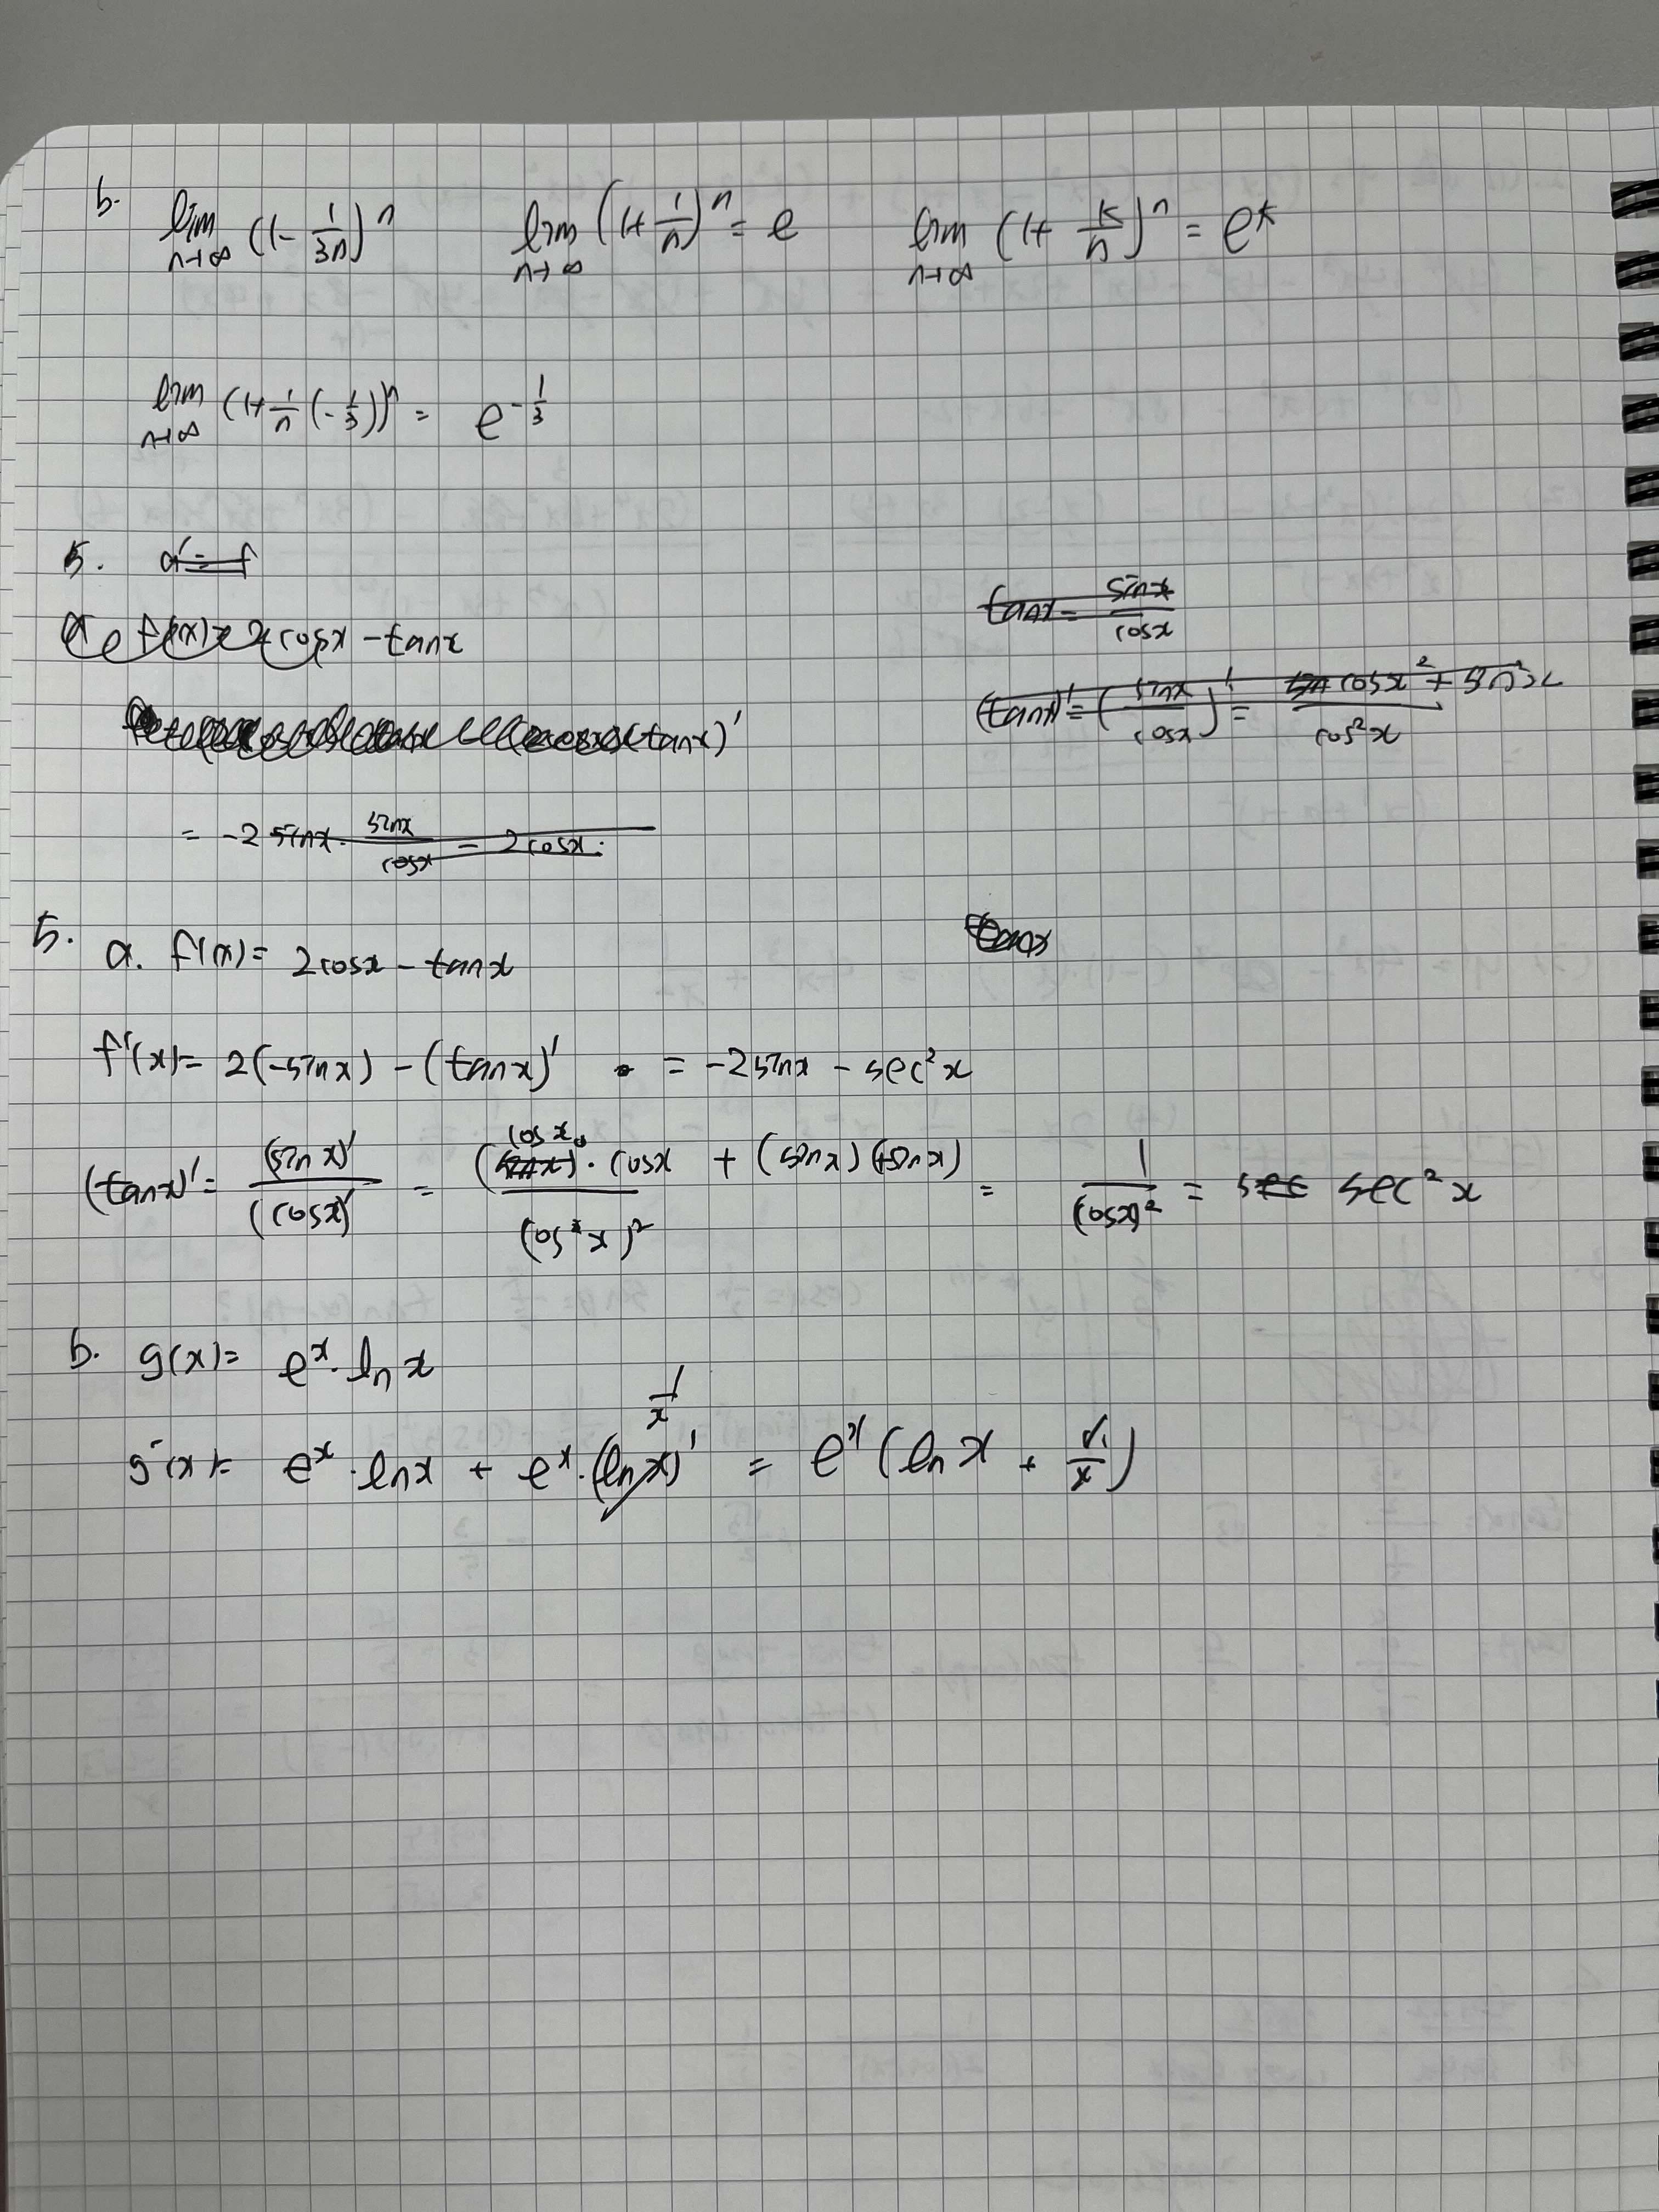 b. lim n→∞ (1 - 1/3n)^n   lim n→∞ (1+ 1/n)^n = e   lim n→∞ (1+ k/n)^n = e^k
lim n→∞ (1+ 1/n (-1/3))^n = e^(-1/3)
5. a'= f
a f(x)= 2cosx - tanx   tanx = sinx/cosx
(tanx)'   (tanx)' = (sinx/cosx)' = (cosx² + sin²x)/cos²x
= -2sinx · sinx/cosx = 2cosx.
5. a. f(x)= 2cosx - tanx
f'(x)= 2(-sinx) - (tanx)' = -2sinx - sec²x
(tanx)' = (sinx)'/(cosx)' = ((cosx) · cosx + (sinx)(+sinx))/(cos²x)² = 1/(cosx)² = sec sec²x
b. g(x)= e^x · ln x
g'(x)= e^x · lnx + e^x · (lnx)' 1/x = e^x (ln x + 1/x)